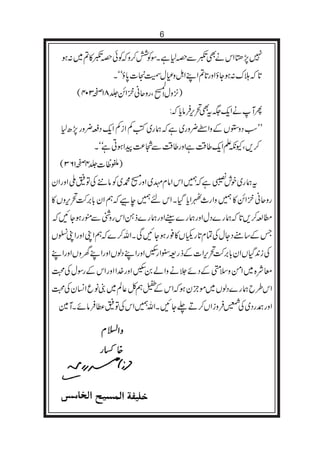 6
نہیں پڑھتا اس میں بھی تکبر سے ایسا حصہ ہے۔ سو کوشش کرو کہ کوئی حصہ تکبر کا تم میں نہ ہو
تا کہ ہلاک نہ ہو جاؤ اور تا تم اپنے اہل و عیال سمیت نجات پاؤ۔‘‘
(نزول المسیح، روحانی خزائن جلد ۱۸ صفحہ ۴۰۳)
پھر آپ نے ایک جگہ یہ بھی تحریر فرمایا کہ:
’’سب دوستوں کے واسطے ضروری ہے کہ ہماری کتب کم از کم ایک دفعہ ضرور پڑھ لیا
کریں، کیونکہ علم ایک طاقت ہے اور طاقت سے شجاعت پیدا ہوتی ہے‘‘۔
(ملفوظات جلد صفحہ ۳۶۱)
یہ ہماری خوش نصیبی ہے کہ ہمیں اس امام مہدی اور مسیح محمدی کو ماننے کی توفیق ملی اور ان
روحانی خزائن کا ہمیں وارث ٹھہرایا گیا۔ اس لئے ہمیں چاہئے کہ ہم ان بابرکت تحریروں کا
مطالعہ کریں تا کہ ہمارے دل اور ہمارے سینے اور ہمارے ذہن اس روشنی سے منور ہو جائیں کہ
جس کے سامنے دجال کی تمام تاریکیاں کافور ہو جائیں گی۔ اللہ کرے کہ ہم اپنی اور اپنی نسلوں
کی زندگیاں ان بابرکت تحریرات کے ذریعہ سنوار سکیں اور اپنے دلوں اور اپنے گھروں اور اپنے
معاشرہ میں امن و سلامتی کے دئے جلانے والے بن سکیں اور خدا اور اس کے رسول کی محبت
اس طرح ہمارے دلوں میں موجزن ہو کہ اس کے طفیل ہم کل عالم میں بنی نوع انسان کی محبت
اور ہمدردی کی شمعیں فروزاں کرتے چلے جائیں۔ اللہ ہمیں اس کی توفیق عطا فرمائے۔ آمین
والسلام
خاکسار
خليفة المسيح الخامس